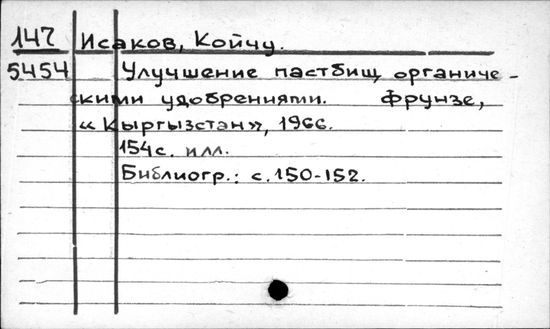 147 Исаков, Койчу.
5454 Улучшение пастбищ органиче-
скими удобрениями. Фрунзе,
«Кыргызстан», 1966.
154с. илл.
Библиогр.: с.150-152.